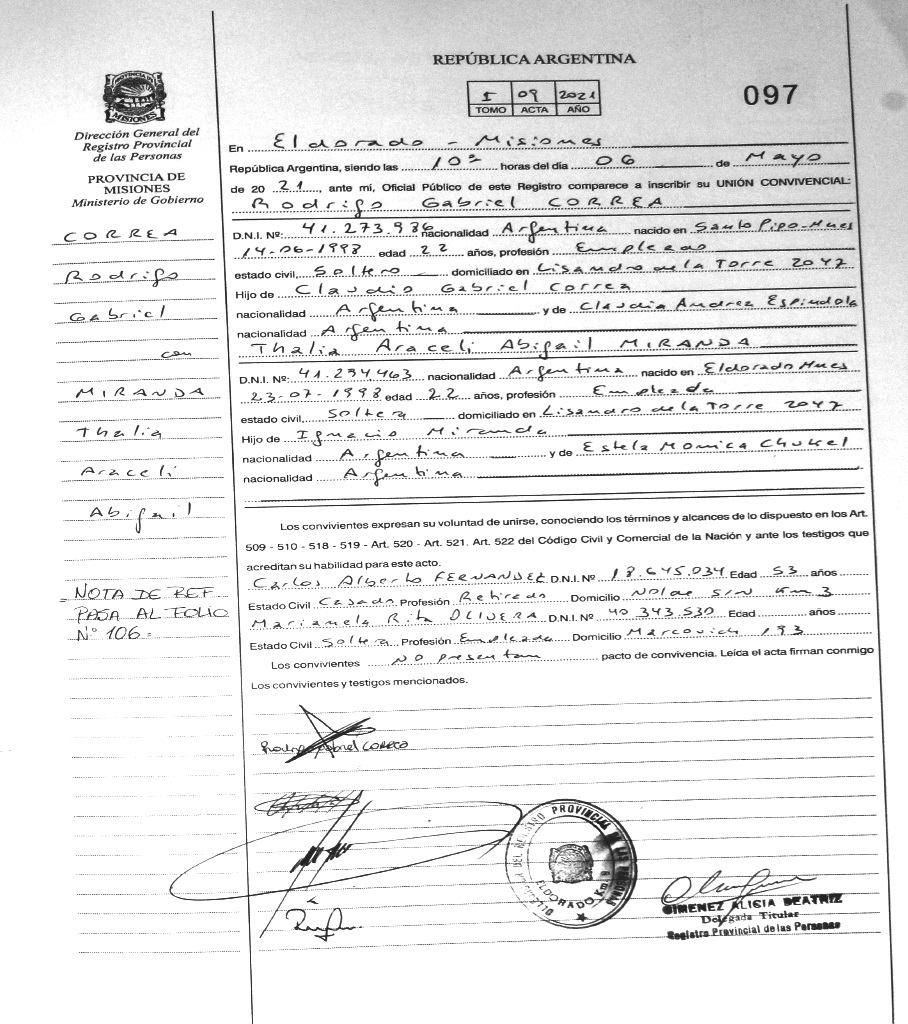 REPÚBLICA ARGENTINA
I 09 2021
TOMO ACTA AÑO
097
PROVINCIA DE
MISIONES
Dirección General del
Registro Provincial
de las Personas
PROVINCIA DE
MISIONES
Ministerio de Gobierno
CORREA
Rodrigo
Gabriel
con
MIRANDA
Thalia
Araceli
Abigail
NOTA DE REF
PASA AL FOLIO
N° 106.
En Eldorado - Misiones
República Argentina, siendo las 10 horas del día 06 de Mayo
de 20 21, ante mí, Oficial Público de este Registro comparece a inscribir su UNIÓN CONVIVENCIAL:
Rodrigo Gabriel CORREA
D.N.I. Nº: 41.273.936 nacionalidad Argentina nacido en Santo Pipo-Mnes
14-06-1998 edad 22 años, profesión Empleado
estado civil, Soltero domiciliado en Lisandro de la Torre 2047
Hijo de Claudio Gabriel Correa
nacionalidad Argentina y de Claudia Andrea Espindola
nacionalidad Argentina
Thalia Araceli Abigail MIRANDA
D.N.I. Nº: 41.294463 nacionalidad Argentina nacido en Eldorado Mnes
23-07-1998 edad 22 años, profesión Empleada
estado civil, Soltera domiciliado en Lisandro de la Torre 2047
Hijo de Ignacio Miranda
nacionalidad Argentina y de Estela Monica
nacionalidad Argentina
Los convivientes expresan su voluntad de unirse, conociendo los términos y alcances de lo dispuesto en los Art.
509 - 510 - 518 - 519 - Art. 520 - Art. 521. Art. 522 del Código Civil y Comercial de la Nación y ante los testigos que
acreditan su habilidad para este acto.
Carlos Alberto FERNANDEZ D.N.I. Nº 18.645.034 Edad 53 años
Estado Civil Casado Profesión Retirado Domicilio Nolde S/N Km 3
Marianela Rita OLIVERA D.N.I. Nº 40 343.530 Edad años
Estado Civil Soltera Profesión Empleada Domicilio Marcovich 193
Los convivientes NO presentan pacto de convivencia. Leíca el acta firman conmigo
Los convivientes y testigos mencionados.
Rodrigo Gabriel Correa
REGISTRO PROVINCIAL DE LAS PERSONAS
ELDORADO Km 9
GIMENEZ ALICIA BEATRIZ
Delegada Titular
Registro Provincial de las Personas